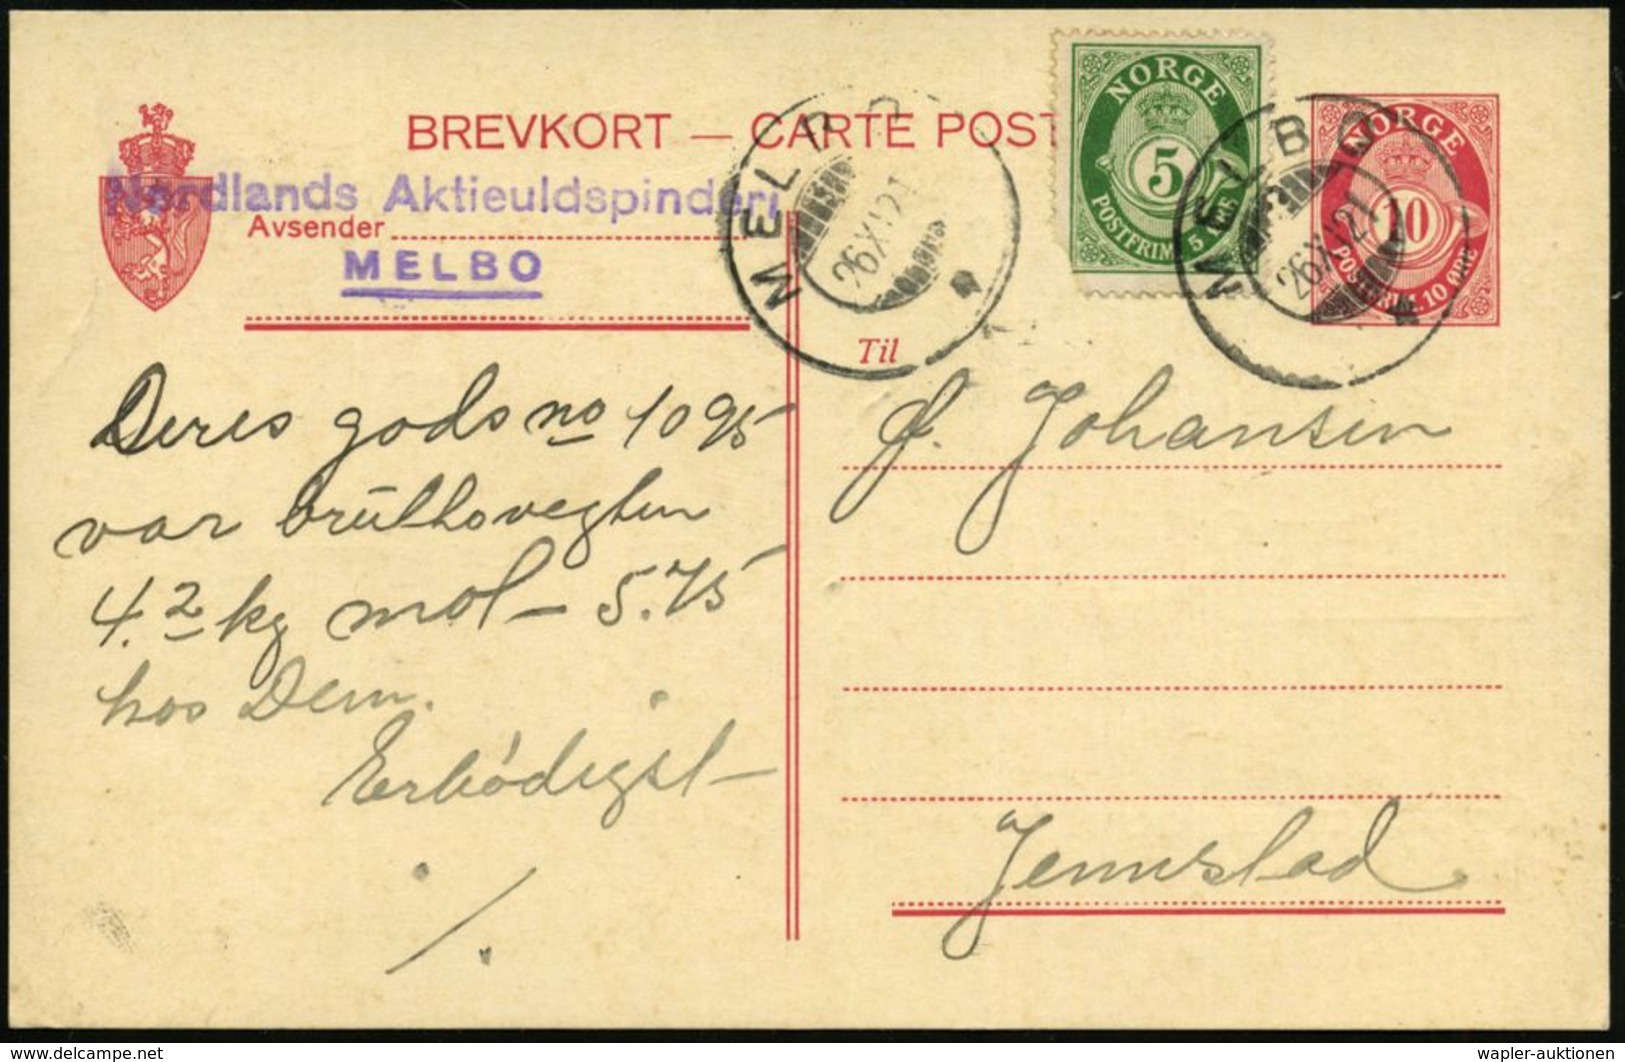 BREVKORT — CARTE POST
Nordlands Aktieuldspinderi
Avsender
MELBO
MELBO
26 XI 21
NORGE
5
POSTFRIM. 5 ØRE
MELBO
26 XI 21
NORGE
10
POSTFRIM. 10 ØRE
Til
Deres gods no 1095
var bruttovegten
4.2 kg mot 5.75
hos Dem.
Erbødigst
J. Johansen
Jennestad
delcampe.net
wapler-auktionen